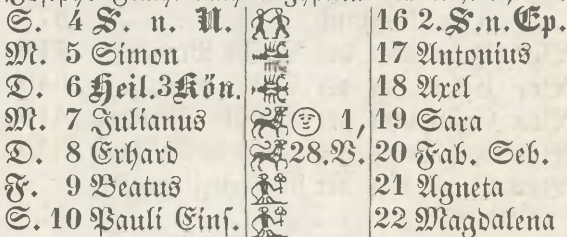 S. 4 S. n. N. 16 2.S.n.Ep.
M. 5 Simon 17 Antonius
D. 6 Heil.3Kön. 18 Axel
M. 7 Julianus 1, 19 Sara
D. 8 Erhard 28.V. 20 Fab. Seb.
F. 9 Beatus 21 Agneta
S. 10 Pauli Eins. 22 Magdalena